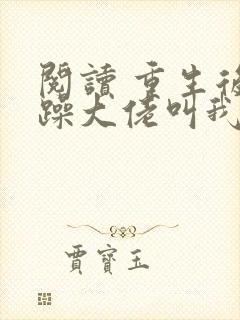 閱讀 重生後
躁大佬叫我
賈寶玉